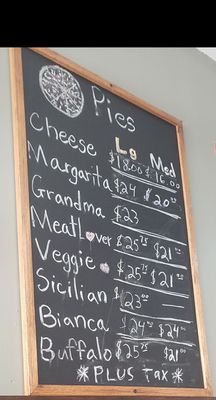 Pies
Lg Med
Cheese $18.00 $16.00
Margarita $24 $20.00
Grandma $23
MeatLover $25.75 $21
Veggie $25.75 $21
Sicilian $23.00
Bianca $24 $24
Buffalo $25.75 $21
*PLUS Tax*